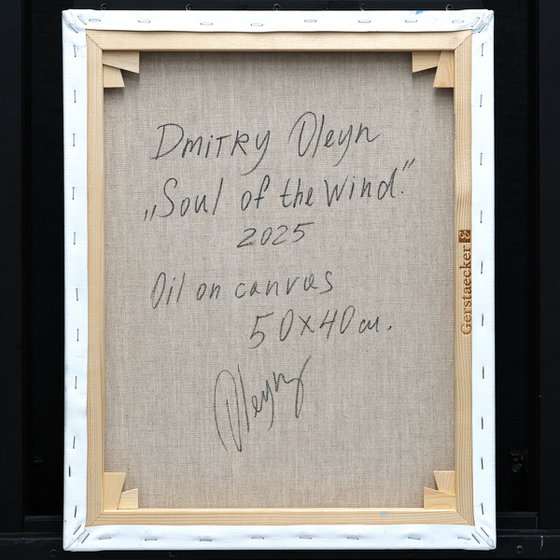 Dmitry Oleyn
„Soul of the Wind."
2025
Oil on canvas
50x40 cm.
Oleyn
Gerstaecker